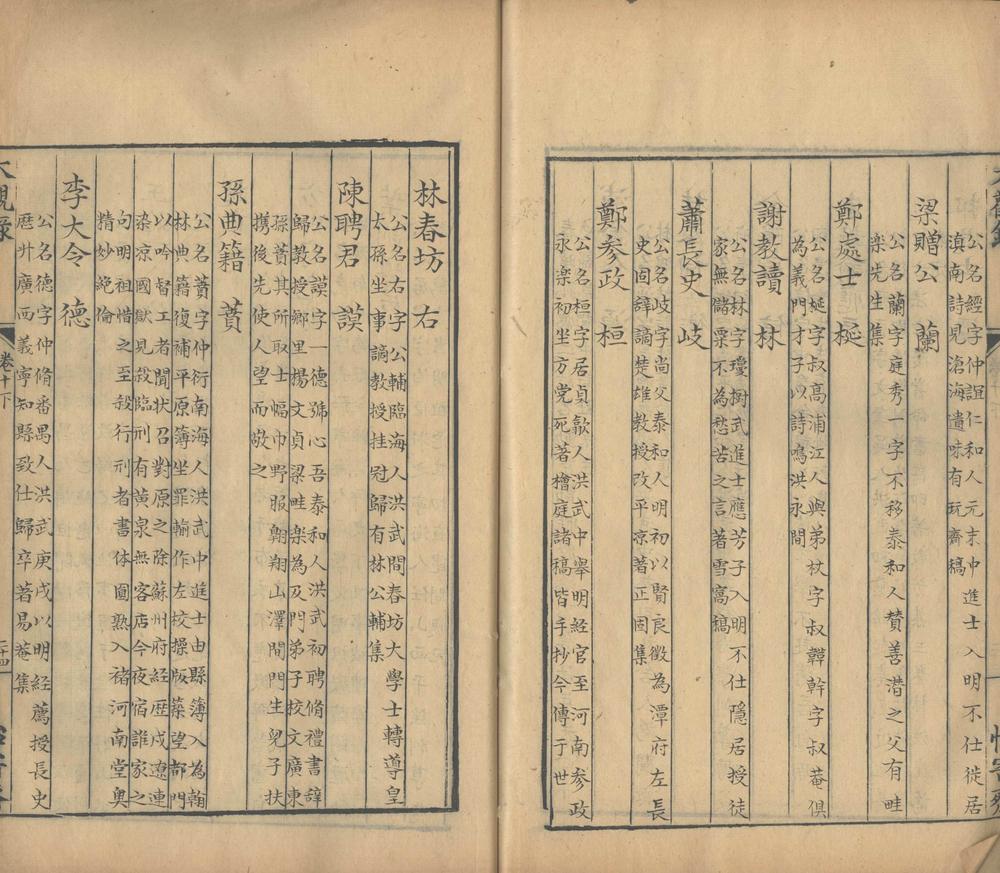 公名經字仲誼仁和人元末中進士入明不仕徙居
滇南詩見滄海遺味有玩齋稿
梁贈公 蘭
公名蘭字庭秀一字不移泰和人賛善潜之父有畦
樂先生集
鄭處士 梴
公名梴字叔高浦江人與弟杖字叔韡幹字叔菴俱
為義門才子以詩鳴洪永間
謝教讀 林
公名林字瓊樹武進士應芳子入明不仕隱居授徒
家無儲粟不為愁苦之言著雪窩稿
蕭長史 岐
公名岐字尚父泰和人明初以賢良徵為潭府左長
史固辭謫楚雄教授改平凉著正固集
鄭参政 桓
公名桓字居貞歙人洪武中舉明經官至河南参政
永樂初坐方党死著檜庭諸稿皆手抄今傳于世
林春坊 右
公名右字公輔臨海人洪武間春坊大學士轉導皇
太孫坐事謫教授挂冠歸有林公輔集
陳聘君 謨
公名謨字一德號心吾泰和人洪武初聘脩禮書辭
歸教授鄉里楊文貞梁畦樂為及門弟子校文廣東
孫蕡其所取士幅巾野服翱翔山澤間門生兒子扶
携後先使人望而敬之
孫典籍 蕡
公名蕡字仲衍南海人洪武中進士由縣簿入為翰
林典籍復補平原簿坐罪輸作左校操版築望都門
以吟督工者聞状召對原之除蘇州府經歷戍遼連
染凉國獄見殺臨刑有黄泉無客店今夜宿誰家之
句明祖惜之至殺行刑者書体圓熟入禇河南堂奥
精妙絶倫
李大令 德
公名德字仲脩番禺人洪武庚戌以明經薦授長史
歷升廣西義寧知縣致仕歸卒著易菴集
大觀錄 卷十下 二十四